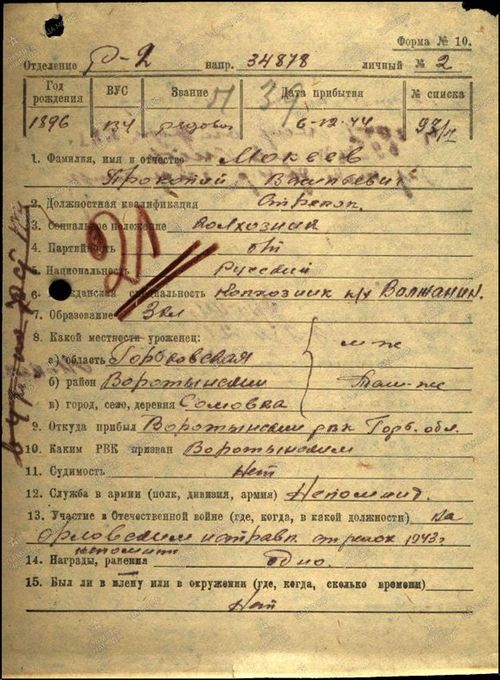 Форма № 10.
Отделение р-2 напр. 34878 личный № 2
Год рождения ВУС Звание Дата прибытия № списка
1896 134 рядовой 6-12-44
1. Фамилия, имя и отчество Мокеев
Прокопий Васильевич
2. Должностная квалификация Стрелок
3. Социальное положение колхозник
4. Партийность б/п
5. Национальность Русский
6. Гражданская специальность Колхозник к/х Волжанин.
7. Образование 3 кл
8. Какой местности уроженец:
а) область Горьковская
б) район Воротынский
в) город, село, деревня Сомовка
м-ж
Там-же
9. Откуда прибыл Воротынским рвк Горьк. обл.
10. Каким РВК призван Воротынским
11. Судимость Нет
12. Служба в армии (полк, дивизия, армия) Непомнид.
13. Участие в Отечественной войне (где, когда, в какой должности) На
Орловским направл. стрелок 1943г
14. Награды, ранения одно.
15. Был ли в плену или в окружении (где, когда, сколько времени)
Нет
21